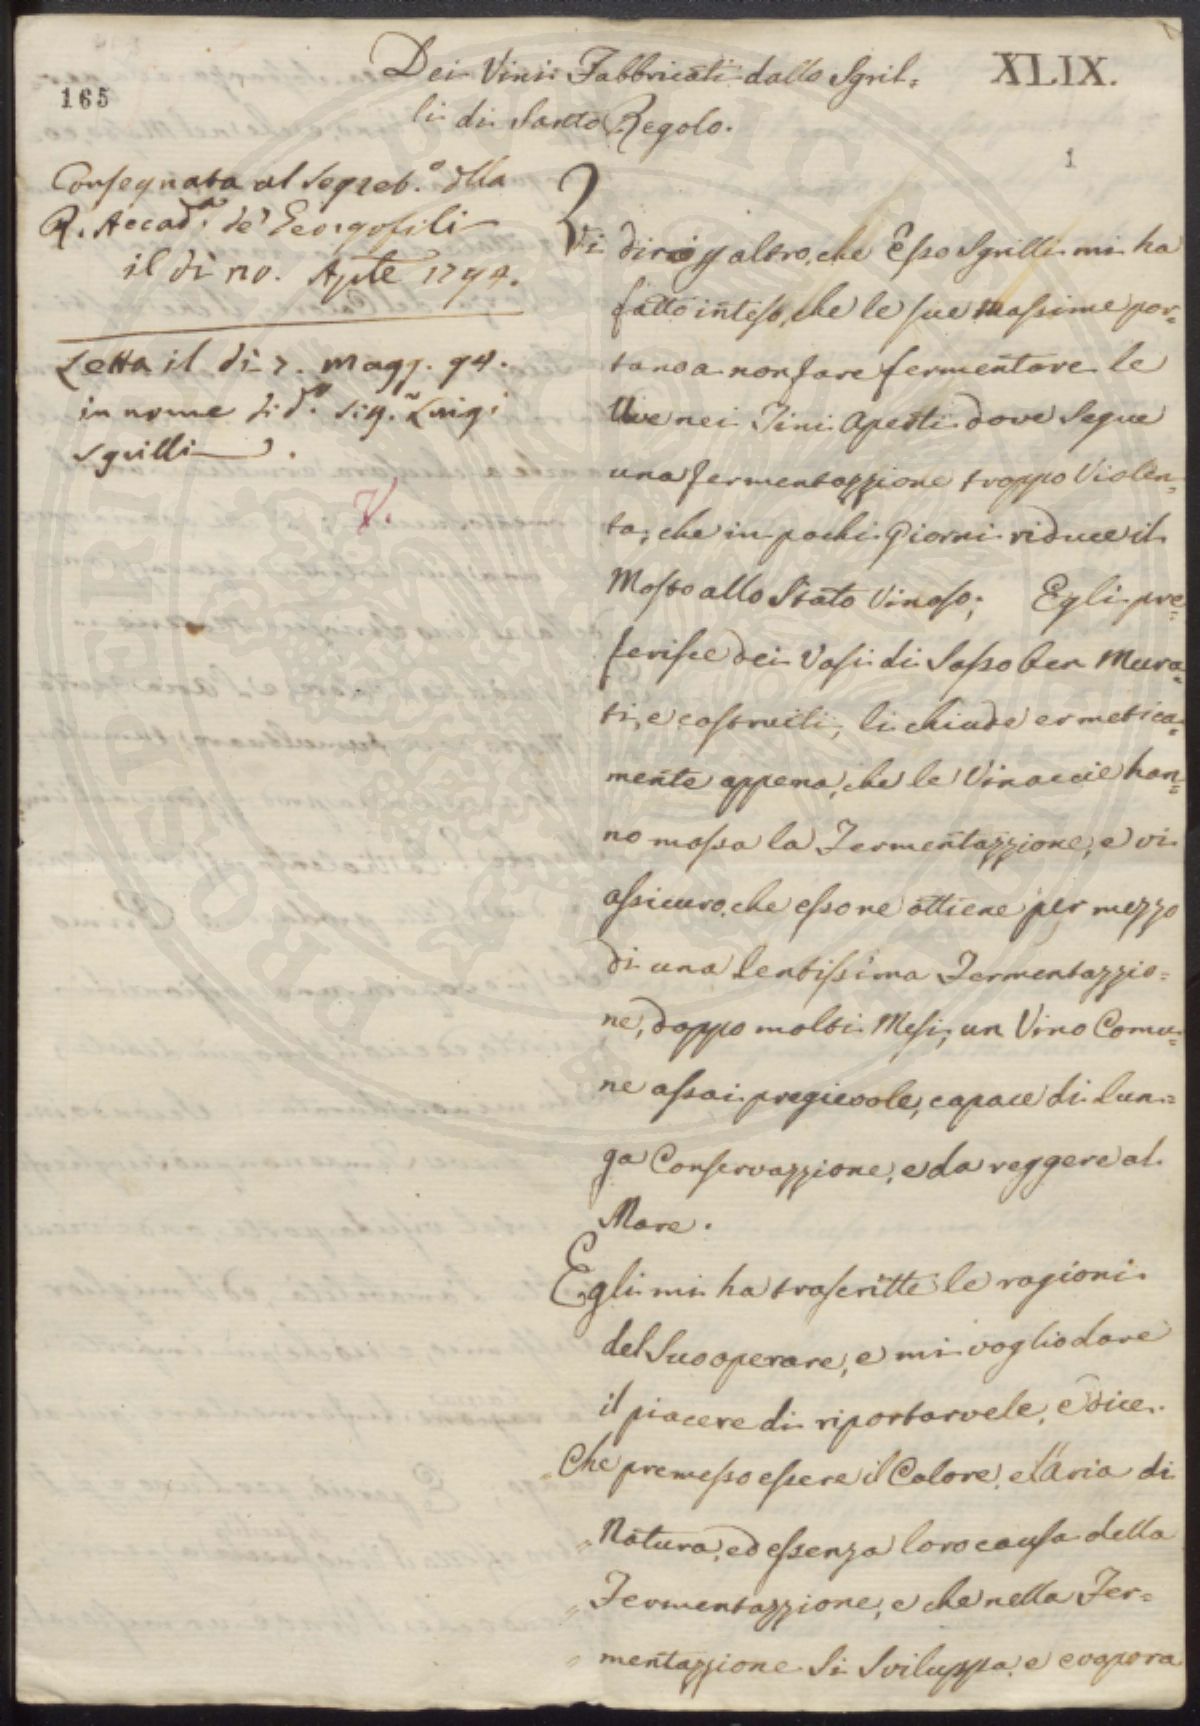 Dei Vini Fabbricati dallo Sgril-
li di Santo Regolo.
XLIX.
165
1
Consegnata al Segret.o della
R. Accad.a de' Georgofili
il dì 20. Aprle 1794.
Letta il dì 7. Magg. 94.
in nome di d.o Sig. Luigi
Sgrilli.
V.
Vi dirò p altro, che Esso Sgrilli mi ha
fatto inteso, che le sue Massime por=
tano a non fare fermentare le
Uve nei Tini Aperti dove Segue
una fermentazzione troppo Violen=
ta, che in pochi Giorni riduce il
Mosto allo Stato Vinoso; Egli pre=
ferisce dei Vasi di Sasso ben Mura=
ti, e costruiti, li chiude ermetica=
mente appena, che le Vinaccie han=
no mossa la Fermentazzione, e vi
assicuro, che esso ne ottiene per mezzo
di una lentissima Fermentazzio=
ne, doppo molti Mesi, un Vino Comu=
ne assai pregievole, capace di lun=
ga Conservazzione, e da reggere al
Mare.
Egli mi ha trascritte le ragioni
del Suo operare, e mi voglio dare
il piacere di riportarvele, e dice.
„ Che premesso essere il Calore, e l'Aria di
„ Natura, ed essenza loro causa della
„ Fermentazzione, e che nella Fer=
„ mentazzione Si Sviluppa, e evapora